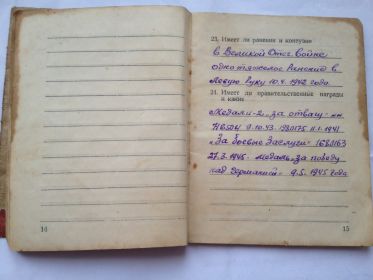 23. Имеет ли ранения и контузии
в Великой Отеч войне
одно тяжелое Ранение в
Левую Руку 10.4.1942 года
24. Имеет ли правительственные награды
и какие
"Медали-2 "за отвагу"
9.10.43
"За боевые Заслуги"
27.3.1945 медаль "за победу
над Германией" 9.5.1945 года
14
15